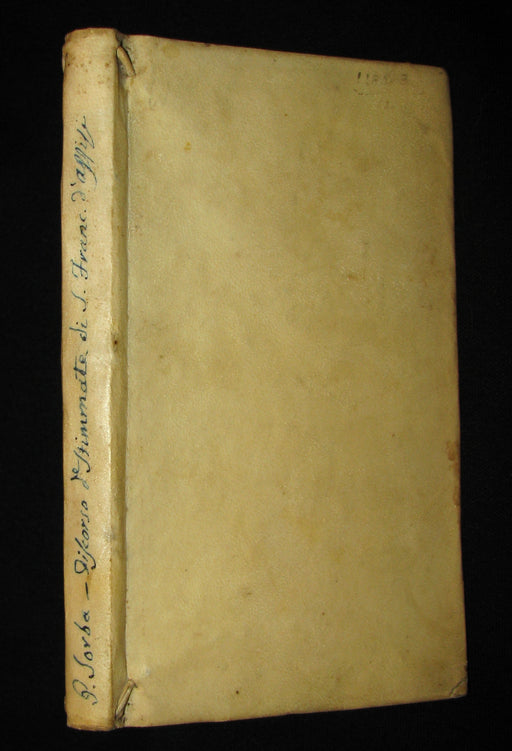 P. Sorba — Discorso de Stimmate di S. Franc. d'Assisi